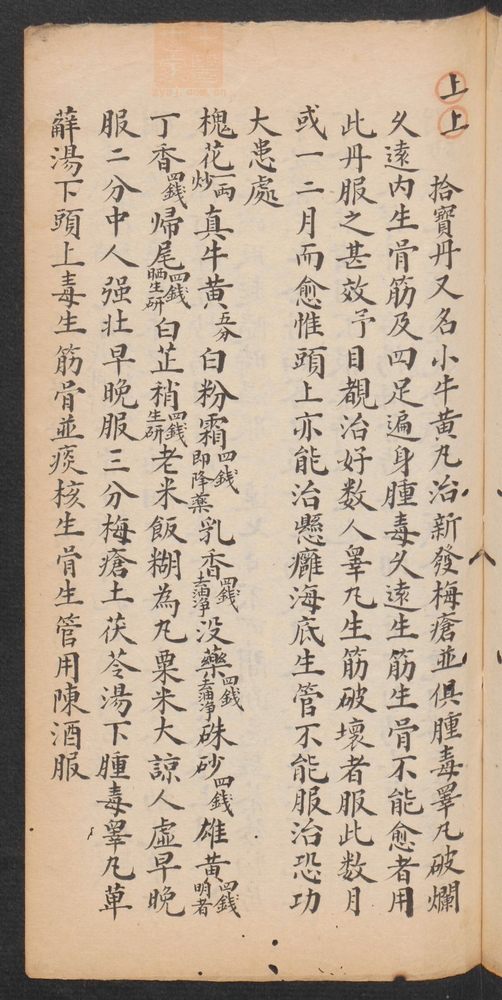 上上
拾寶丹又名小牛黄丸治新發梅瘡並俱腫毒睪丸破爛
久遠内生骨筋及四足遍身腫毒久遠生筋生骨不能愈者用
此丹服之甚效予目覩治好数人睪丸生筋破壞者服此数月
或一二月而愈惟頭上亦能治懸癰海底生管不能服治恐功
大患處
槐花一両炒真牛黄五分白粉霜四錢即降藥乳香四錢去油净没藥四錢去油净硃砂四錢雄黄四錢明者
丁香四錢歸尾四錢晒生研白芷稍四錢生研老米飯糊為丸粟米大諒人虛早晚
服二分中人强壮早晚服三分梅瘡土茯苓湯下腫毒睪丸萆
薢湯下頭上毒生筋骨並痰核生骨生管用陳酒服